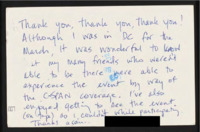 Thank you, Thank you, Thank you!
Although I was in DC for the
March, it was wonderful to
it my many friends who weren't
able to be there were able to
experience the event by way of
the CSPAN coverage. I've also
enjoyed getting to see the event.
(on tape) as I couldn't while participating
Thanks again